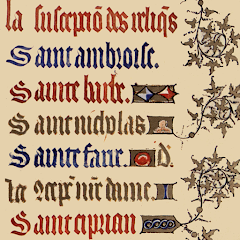 la suscepciõ des reliq̃s
Saint ambroise.
Sainte barbe.
Saint nicholas
Sainte
la nr̃e dame.
Saint ciprian